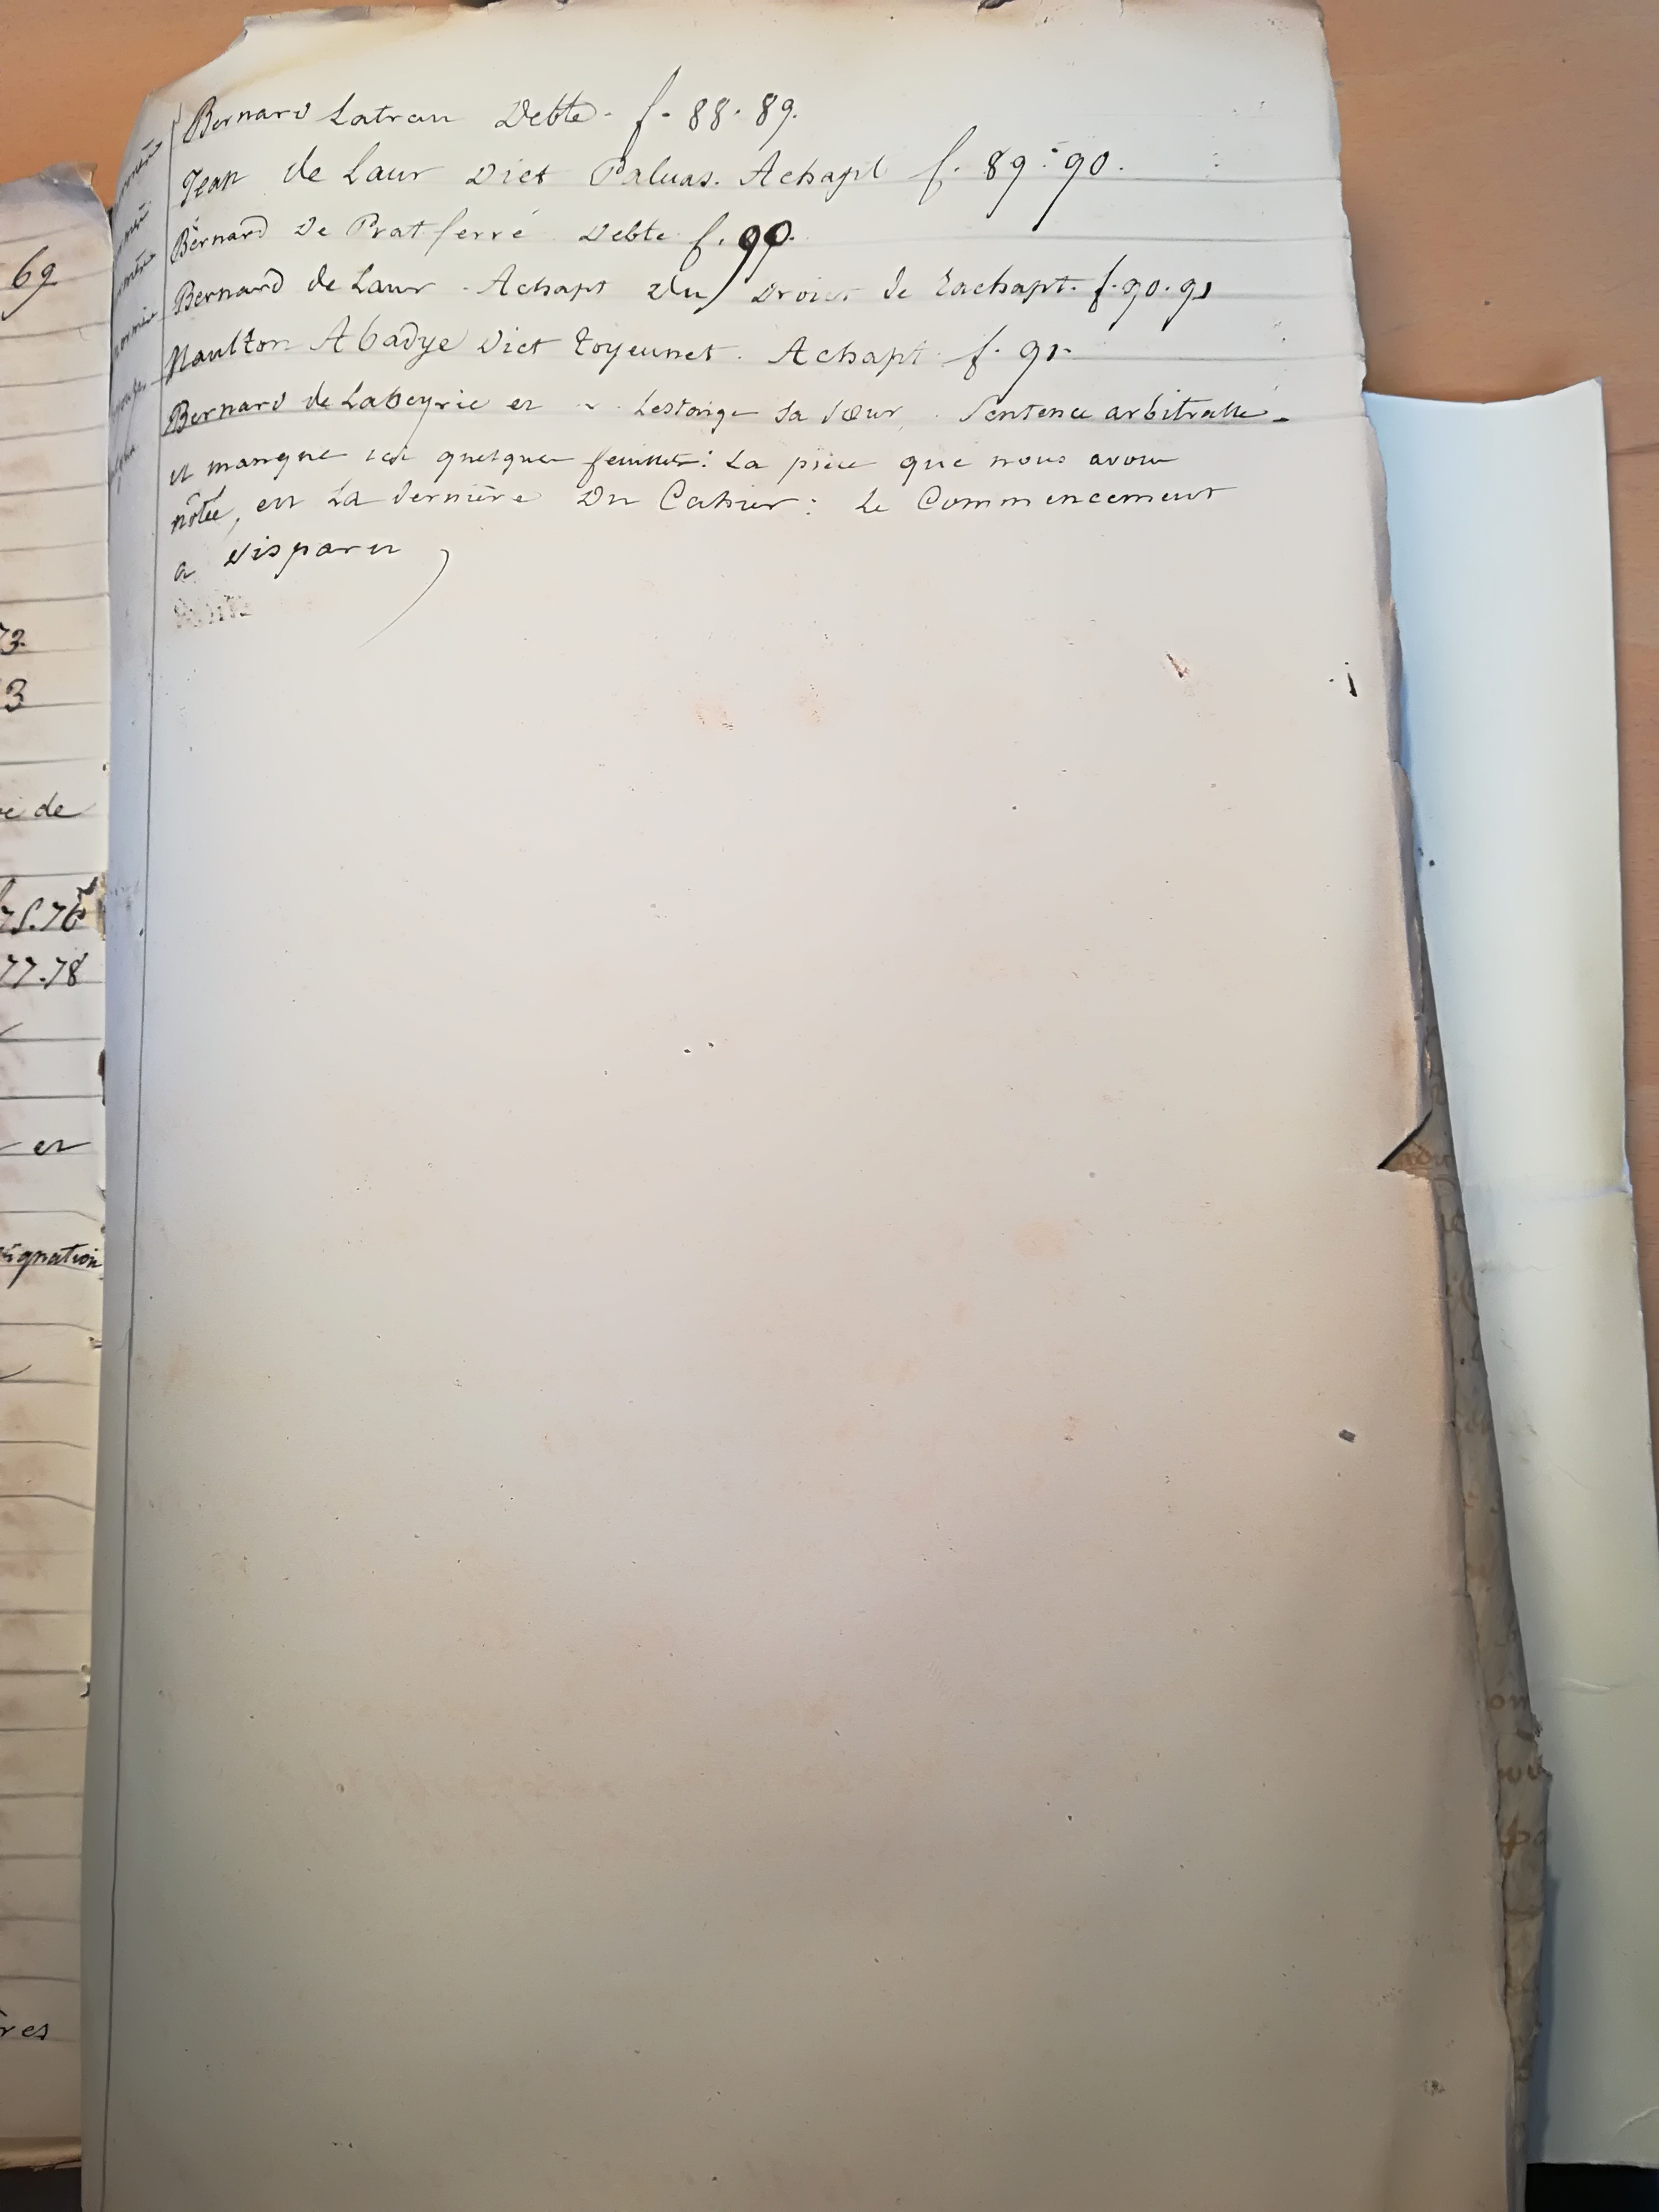 69
73.
3
de
75.76
77.78
et
ignation
res
Bernard Latran Debte. f. 88. 89.
Jean de Laur Dict Paluas. Achapt f. 89. 90.
Bernard De Prat ferré Debte f. 90.
Bernard de Laur. Achapt Du Droit de Rachapt. f. 90. 91
Naulton Abadye Dict Toyeunet. Achapt f. 91.
Bernard de Labeyrie et Lestonge sa sœur. Sentence arbitralle.
il manque ici quelques feuillets: La pièce que nous avons
nôtée, est La dernière Du Cahier: Le Commencement
a Disparu